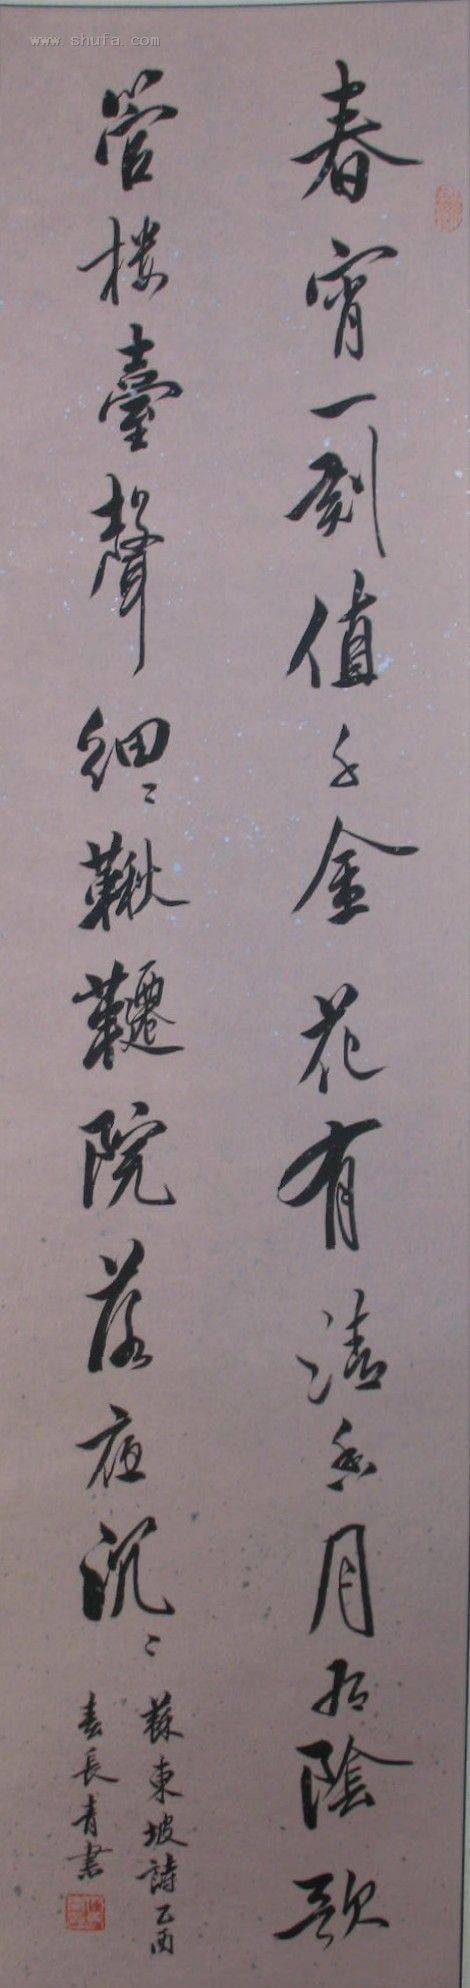 春宵一刻值千金花有清香月有陰歌
管楼臺聲細〻鞦韆院落夜沉〻
蘇東坡詩乙酉
春長青書
www.shufa.com